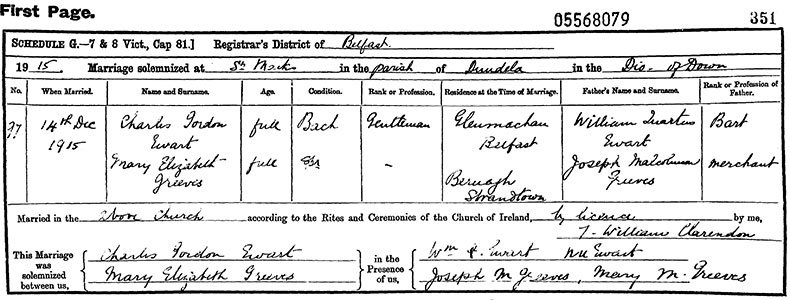 First Page.
05568079 351
SCHEDULE G.—7 & 8 Vict., Cap 81.] Registrar's District of Belfast
1915. Marriage solemnized at St Marks in the parish of Dundela in the Dio. of Down
No. When Married. Name and Surname. Age. Condition. Rank or Profession. Residence at the Time of Marriage. Father's Name and Surname. Rank or Profession of Father.
97 14th Dec 1915 Charles Gordon Ewart full Bach Gentleman Glenmachan Belfast William Quartus Ewart Bart
Mary Elizabeth Greeves full – Bernagh Strandtown Joseph Malcomson Greeves merchant
Married in the above Church according to the Rites and Ceremonies of the Church of Ireland, by licence by me,
William Clarendon
This Marriage was solemnized between us, Charles Gordon Ewart in the Presence of us, Ewart Ewart
Mary Elizabeth Greeves Joseph M Greeves, Mary M. Greeves